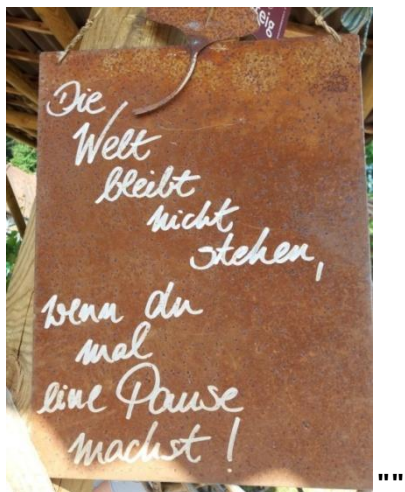 Die
Welt
bleibt
nicht
stehen,
wenn du
mal
eine Pause
machst!
""